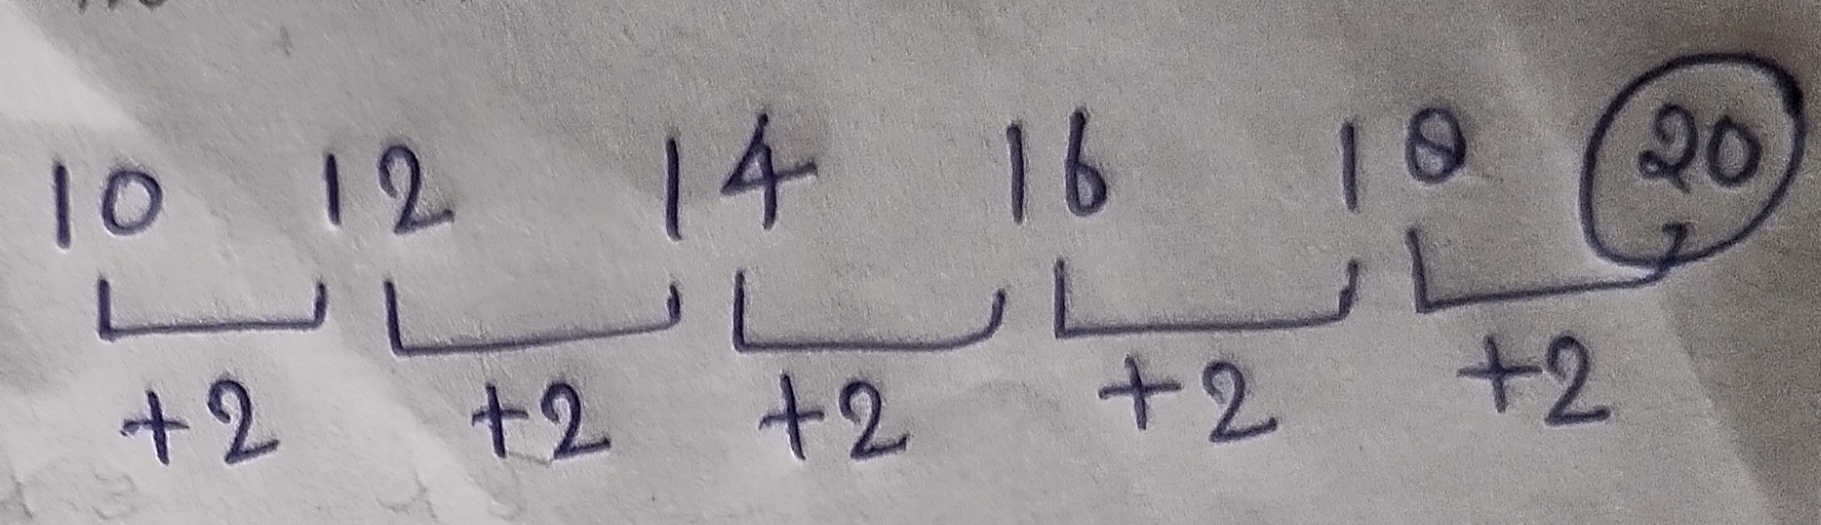 10 12 14 16 18 20
+2 +2 +2 +2 +2